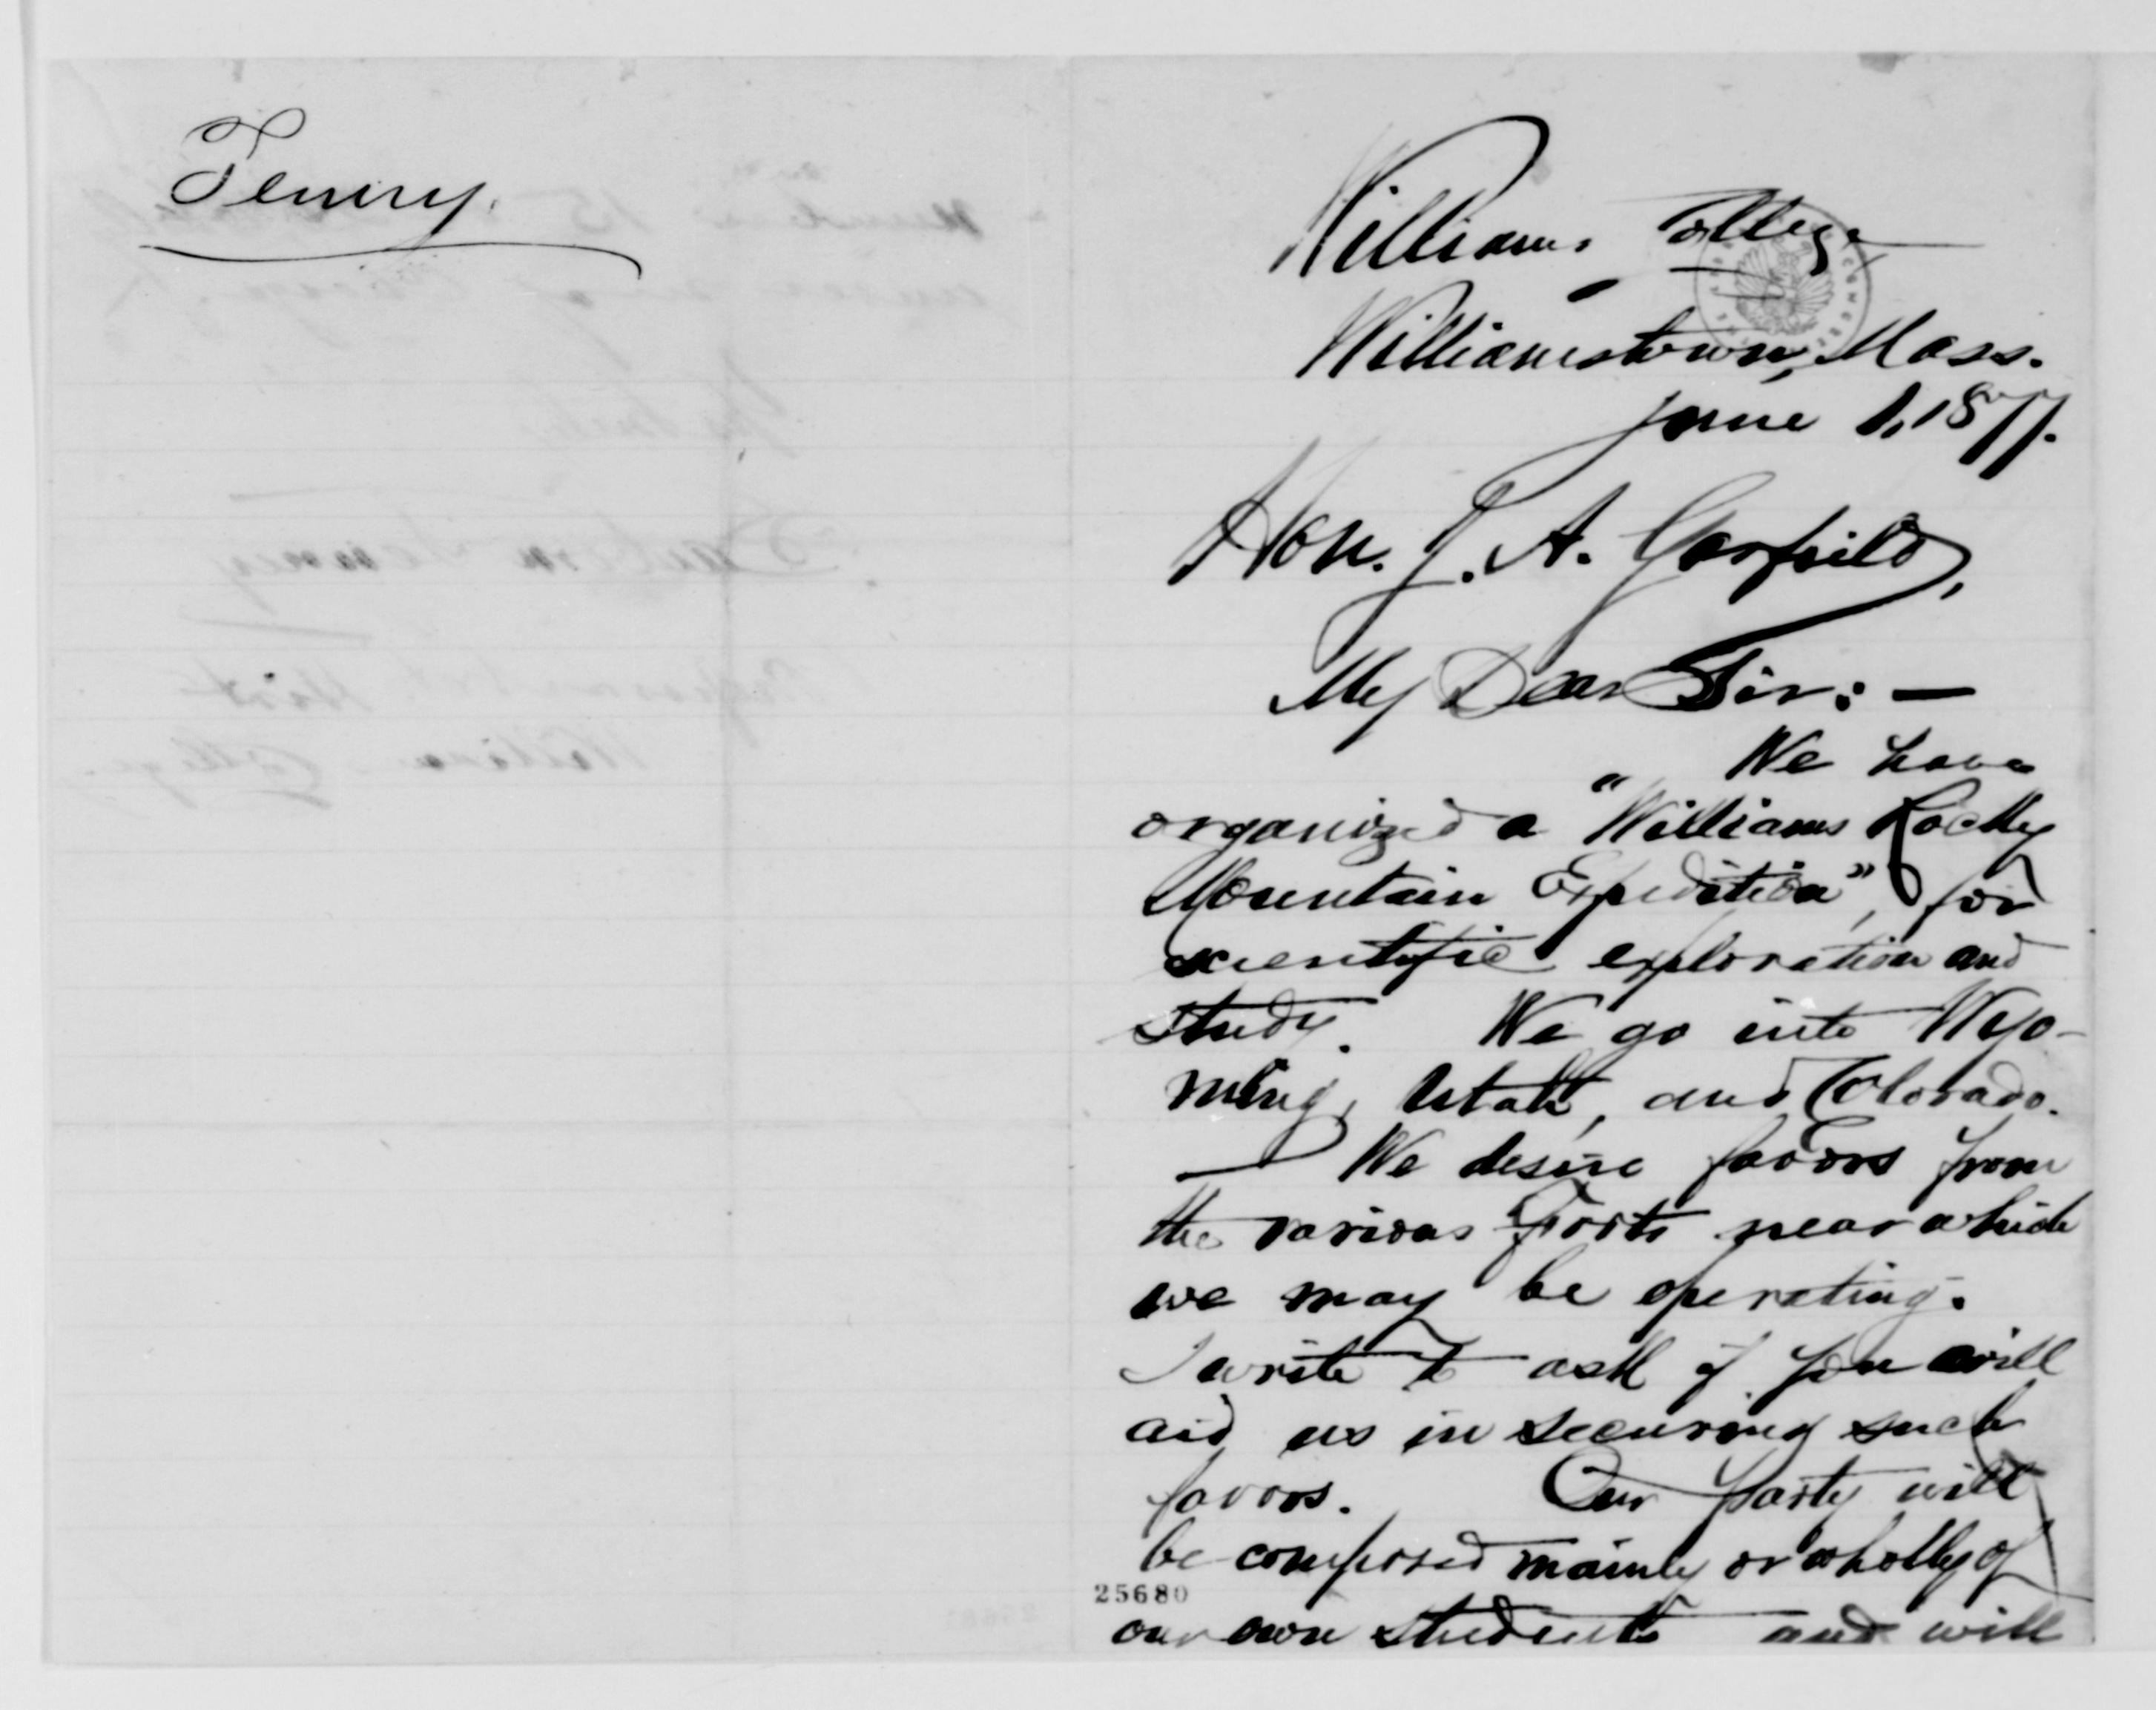 Tenney.
Williams College
Williamstown, Mass.
June 1, 1877.
Hon. J. A. Garfield,
My Dear Sir: —
We have
organized a "Williams Rocky
Mountain Expedition", for
scientific exploration and
study. We go into Wyo-
ming, Utah, and Colorado.
— We desire favors from
the various Forts near which
we may be operating.
I write to ask if you will
aid us in securing such
favors. Our party will
be composed mainly or wholly of
25680
our own students and will